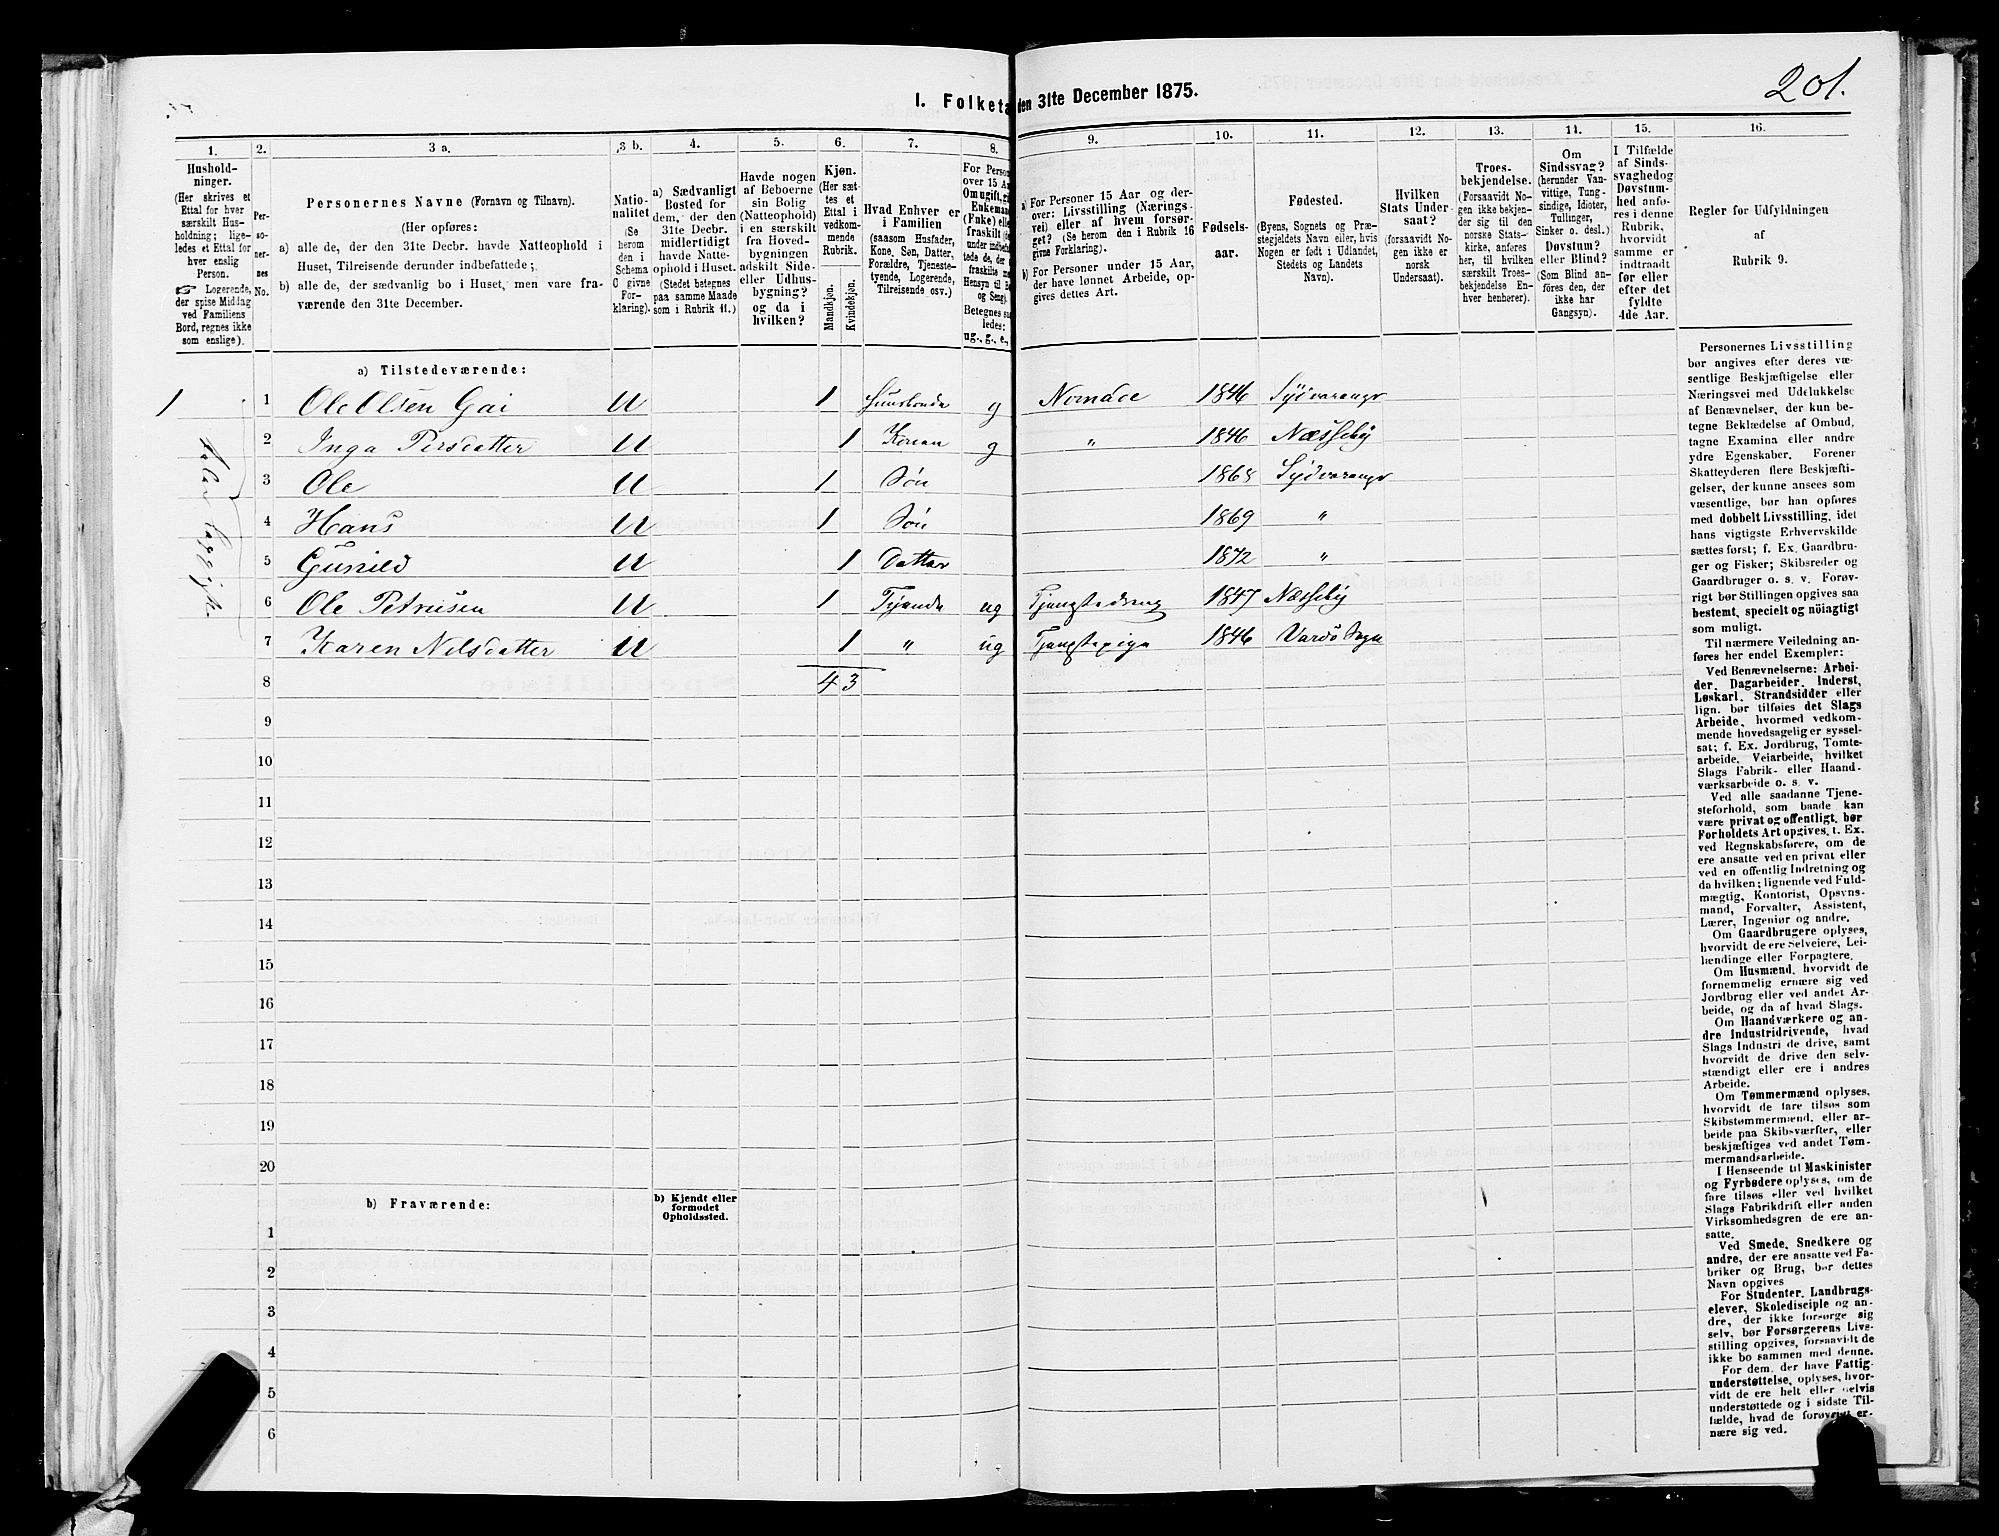 201.
I. Folketa den 31te December 1875.
1. 2. 3 a. 3 b. 4. 5. 6. 7. 8. 9. 10. 11. 12. 13. 14. 15. 16.
Hushold-
ninger.
(Her skrives et
Ettal for hver
særskilt Hus-
holdning; lige-
ledes et Ettal for
hver enslig
Person.
☞ Logerende,
der spise Middag
ved Familiens
Bord, regnes ikke
som enslige).
Per-
so-
ner-
nes
No.
Personernes Navne (Fornavn og Tilnavn).
(Her opføres:
a) alle de, der den 31te Decbr. havde Natteophold i
Huset, Tilreisende derunder indbefattede;
b) alle de, der sædvanlig bo i Huset, men vare fra-
værende den 31te December.
Natio-
nalitet
(Se
herom
den i
Schema
C givne
For-
klaring).
a) Sædvanligt
Bosted for
dem, der den
31te Decbr.
midlertidigt
havde Natte-
ophold i Huset.
(Stedet betegnes
paa samme Maade
som i Rubrik 11.)
Havde nogen
af Beboerne
sin Bolig
(Natteophold)
i en særskilt
fra Hoved-
bygningen
adskilt Side-
eller Udhus-
bygning?
og da i
hvilken?
Kjøn.
(Her sæt-
tes et
Ettal i
vedkom-
mende
Rubrik.
Mandkjøn.
Kvindekjøn.
Hvad Enhver er
i Familien
(saasom Husfader,
Kone, Søn, Datter,
Forældre, Tjeneste-
tyende, Logerende,
Tilreisende osv.)
For Person
over 15 Aa
Om ugift, gi
Enkeman
(Fnke) elle
fraskilt
under indbe
tede de, der
fraskilte
Hensyn til B
og Seng)
Betegnes sa
ledes:
ug., g., e.,
a) For Personer 15 Aar og der-
over: Livsstilling (Nærings-
vei) eller af hvem forsør-
get? (Se herom den i Rubrik 16
givne Forklaring).
b) For Personer under 15 Aar,
der have lønnet Arbeide, op-
gives dettes Art.
Fødsels-
aar.
Fødested.
(Byens, Sognets og Præ-
stegjeldets Navn eller, hvis
Nogen er født i Udlandet,
Stedets og Landets
Navn).
Hvilken
Stats Under-
saat?
(forsaavidt No-
gen ikke er
norsk
Undersaat).
Troes-
bekjendelse.
(Forsaavidt No-
gen ikke bekjen-
der sig til den
norske Stats-
kirke, anføres
her, til hvilken
særskilt Troes-
bekjendelse En-
hver henhører).
Om
Sindssvag?
(herunder Van-
vittige, Tung-
sindige, Idioter,
Tullinger,
Sinker o. desl.)
Døvstum?
eller Blind?
(Som Blind an-
føres den, der
ikke har
Gangsyn).
I Tilfælde
af Sinds-
svaghed og
Døvstum-
hed anfø-
res i denne
Rubrik,
hvorvidt
samme er
indtraadt
før eller
efter det
fyldte
4de Aar.
Regler for Udfyldningen
af
Rubrik 9.
a) Tilstedeværende:
1 1 Ole Olsen Gai U 1 Huusbonde g Nomade 1846 Sydvaranger
2 Inga Persdatter U 1 Konen g " 1846 Næsseby
3 Ole U 1 Søn 1868 Sydvaranger
4 Hans U 1 Søn 1869 "
5 Gunild U 1 Datter 1872 "
6 Ole Petrusen U 1 Tyende ug Tjenestedreng 1847 Næsseby
7 Karen Nilsdatter U 1 " ug Tjenestepige 1846 Vardö Sogn
8 4 3
9
10
11
12
13
14
15
16
17
18
19
20
b) Fraværende:
b) Kjendt eller
formodet
Opholdssted.
1
2
3
4
5
6
Personernes Livsstilling
bør angives efter deres væ-
sentlige Beskjæftigelse eller
Næringsvei med Udelukkelse
af Benævnelser, der kun be-
tegne Beklædelse af Ombud,
tagne Examina eller andre
ydre Egenskaber. Forener
Skatteyderen flere Beskjæfti-
gelser, der kunne ansees som
væsentlige, bør han opføres
med dobbelt Livsstilling, idet
hans vigtigste Erhvervskilde
sættes først; f. Ex. Gaardbru-
ger og Fisker; Skibsreder og
Gaardbruger o. s. v. Forøv-
rigt bør Stillingen opgives saa
bestemt, specielt og nöiagtigt
som muligt.
Til nærmere Veiledning an-
føres her endel Exempler:
Ved Benævnelserne: Arbei-
der, Dagarbeider, Inderst,
Løskarl, Strandsidder eller
lign. bør tilføies det Slags
Arbeide, hvormed vedkom-
mende hovedsagelig er syssel-
sat; f. Ex. Jordbrug, Tomte-
arbeide, Veiarbeide, hvilket
Slags Fabrik- eller Haand-
værksarbeide o. s. v.
Ved alle saadanne Tjene-
steforhold, som baade kan
være privat og offentligt, bør
Forholdets Art opgives, t. Ex.
ved Regnskabsførere, om de
ere ansatte ved en privat eller
ved en offentlig Indretning og
da hvilken; lignende ved Fuld-
mægtig, Kontorist, Opsyns-
mand, Forvalter, Assistent,
Lærer, Ingeniør og andre.
Om Gaardbrugere oplyses,
hvorvidt de ere Selveiere, Lei-
lændinge eller Forpagtere.
Om Husmænd, hvorvidt de
fornemmelig ernære sig ved
Jordbrug eller ved andet Ar-
beide, og da af hvad Slags.
Om Haandværkere og an-
dre Industridrivende, hvad
Slags Industri de drive, samt
hvorvidt de drive den selv-
stændigt eller ere i andres
Arbeide.
Om Tømmermænd oplyses,
hvorvidt de fare tilsøs som
Skibstømmermænd, eller ar-
beide paa Skibsværfter, eller
beskjæftiges ved andet Tøm-
mermandsarbeide.
I Henseende til Maskinister
og Fyrbødere oplyses, om de
fare tilsøs eller ved hvilket
Slags Fabrikdrift eller anden
Virksomhedsgren de ere an-
satte.
Ved Smede, Snedkere og
andre, der ere ansatte ved Fa-
briker og Brug, bør dettes
Navn opgives
For Studenter, Landbrugs-
elever, Skoledisciple og an-
dre, der ikke forsørge sig
selv, bør Forsørgerens Livs-
stilling opgives, forsaavidt de
ikke bo sammen med denne.
For dem, der have Fattig-
understøttelse, oplyses, hvor-
vidt de ere helt eller delvis
understøttede og i sidste Til-
fælde, hvad de forøvrigt er-
nære sig ved.